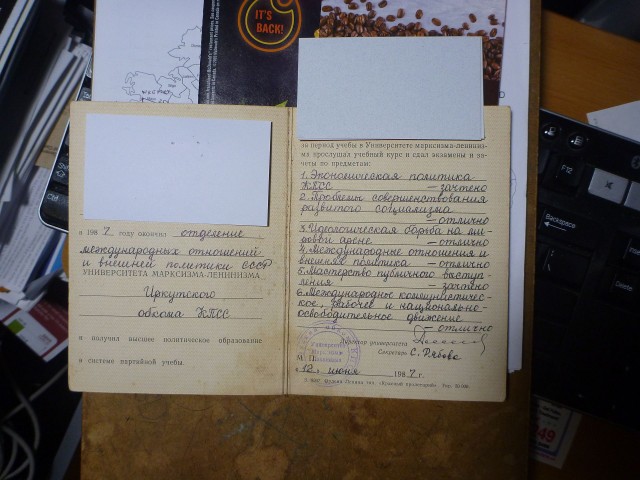 IT'S
BACK!
в 1987 году окончил отделение
международных отношений
и внешней политики СССР
УНИВЕРСИТЕТА МАРКСИЗМА-ЛЕНИНИЗМА
Иркутского
обкома КПСС
и получил высшее политическое образование
в системе партийной учебы.
за период учебы в Университете марксизма-лениниз-
ма прослушал учебный курс и сдал экзамены и за-
четы по предметам:
1. Экономическая политика
КПСС — зачтено
2. Проблемы совершенствования
развитого социализма
— отлично
3. Идеологическая борьба на ми-
ровой арене — отлично
4. Международные отношения и
внешняя политика — отлично
5. Мастерство публичного выступ-
ления — зачтено
6. Международное коммунистичес-
кое, рабочее и национально-
освободительное движение
— отлично
Директор университета
Секретарь С. Рябова
М. П.
Университет
Марксизма
Ленинизма
«12» июня 1987 г.
Shift
Ctrl
F12
Backspace